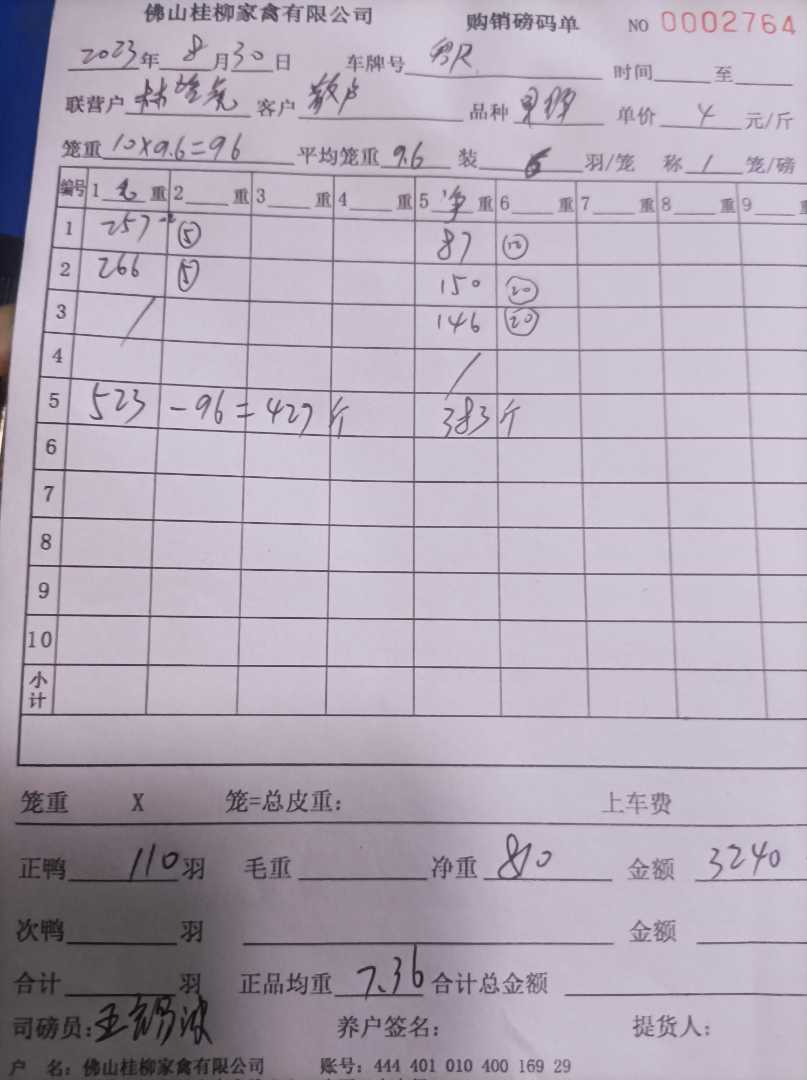 佛山桂柳家禽有限公司 购销磅码单 NO 0002764
2023年 8月30日 车牌号 时间 至
联营户 林 客户 散户 品种 单价 4 元/斤
笼重 10×9.6=96 平均笼重 9.6 装 羽/笼 称 1 笼/磅
编号 1 毛 重 2 重 3 重 4 重 5 净 重 6 重 7 重 8 重 9
1 257 ⑤ 87 ⑩
2 266 ⑤ 150 ⑳
3 / 146 ⑳
4 /
5 523 -96=427斤 383斤
6
7
8
9
10
小计
笼重 X 笼=总皮重: 上车费
正鸭 110 羽 毛重 净重 810 金额 3240
次鸭 羽 金额
合计 羽 正品均重 7.36 合计总金额
司磅员: 王锡波 养户签名: 提货人:
户 名: 佛山桂柳家禽有限公司 账号: 444 401 010 400 169 29